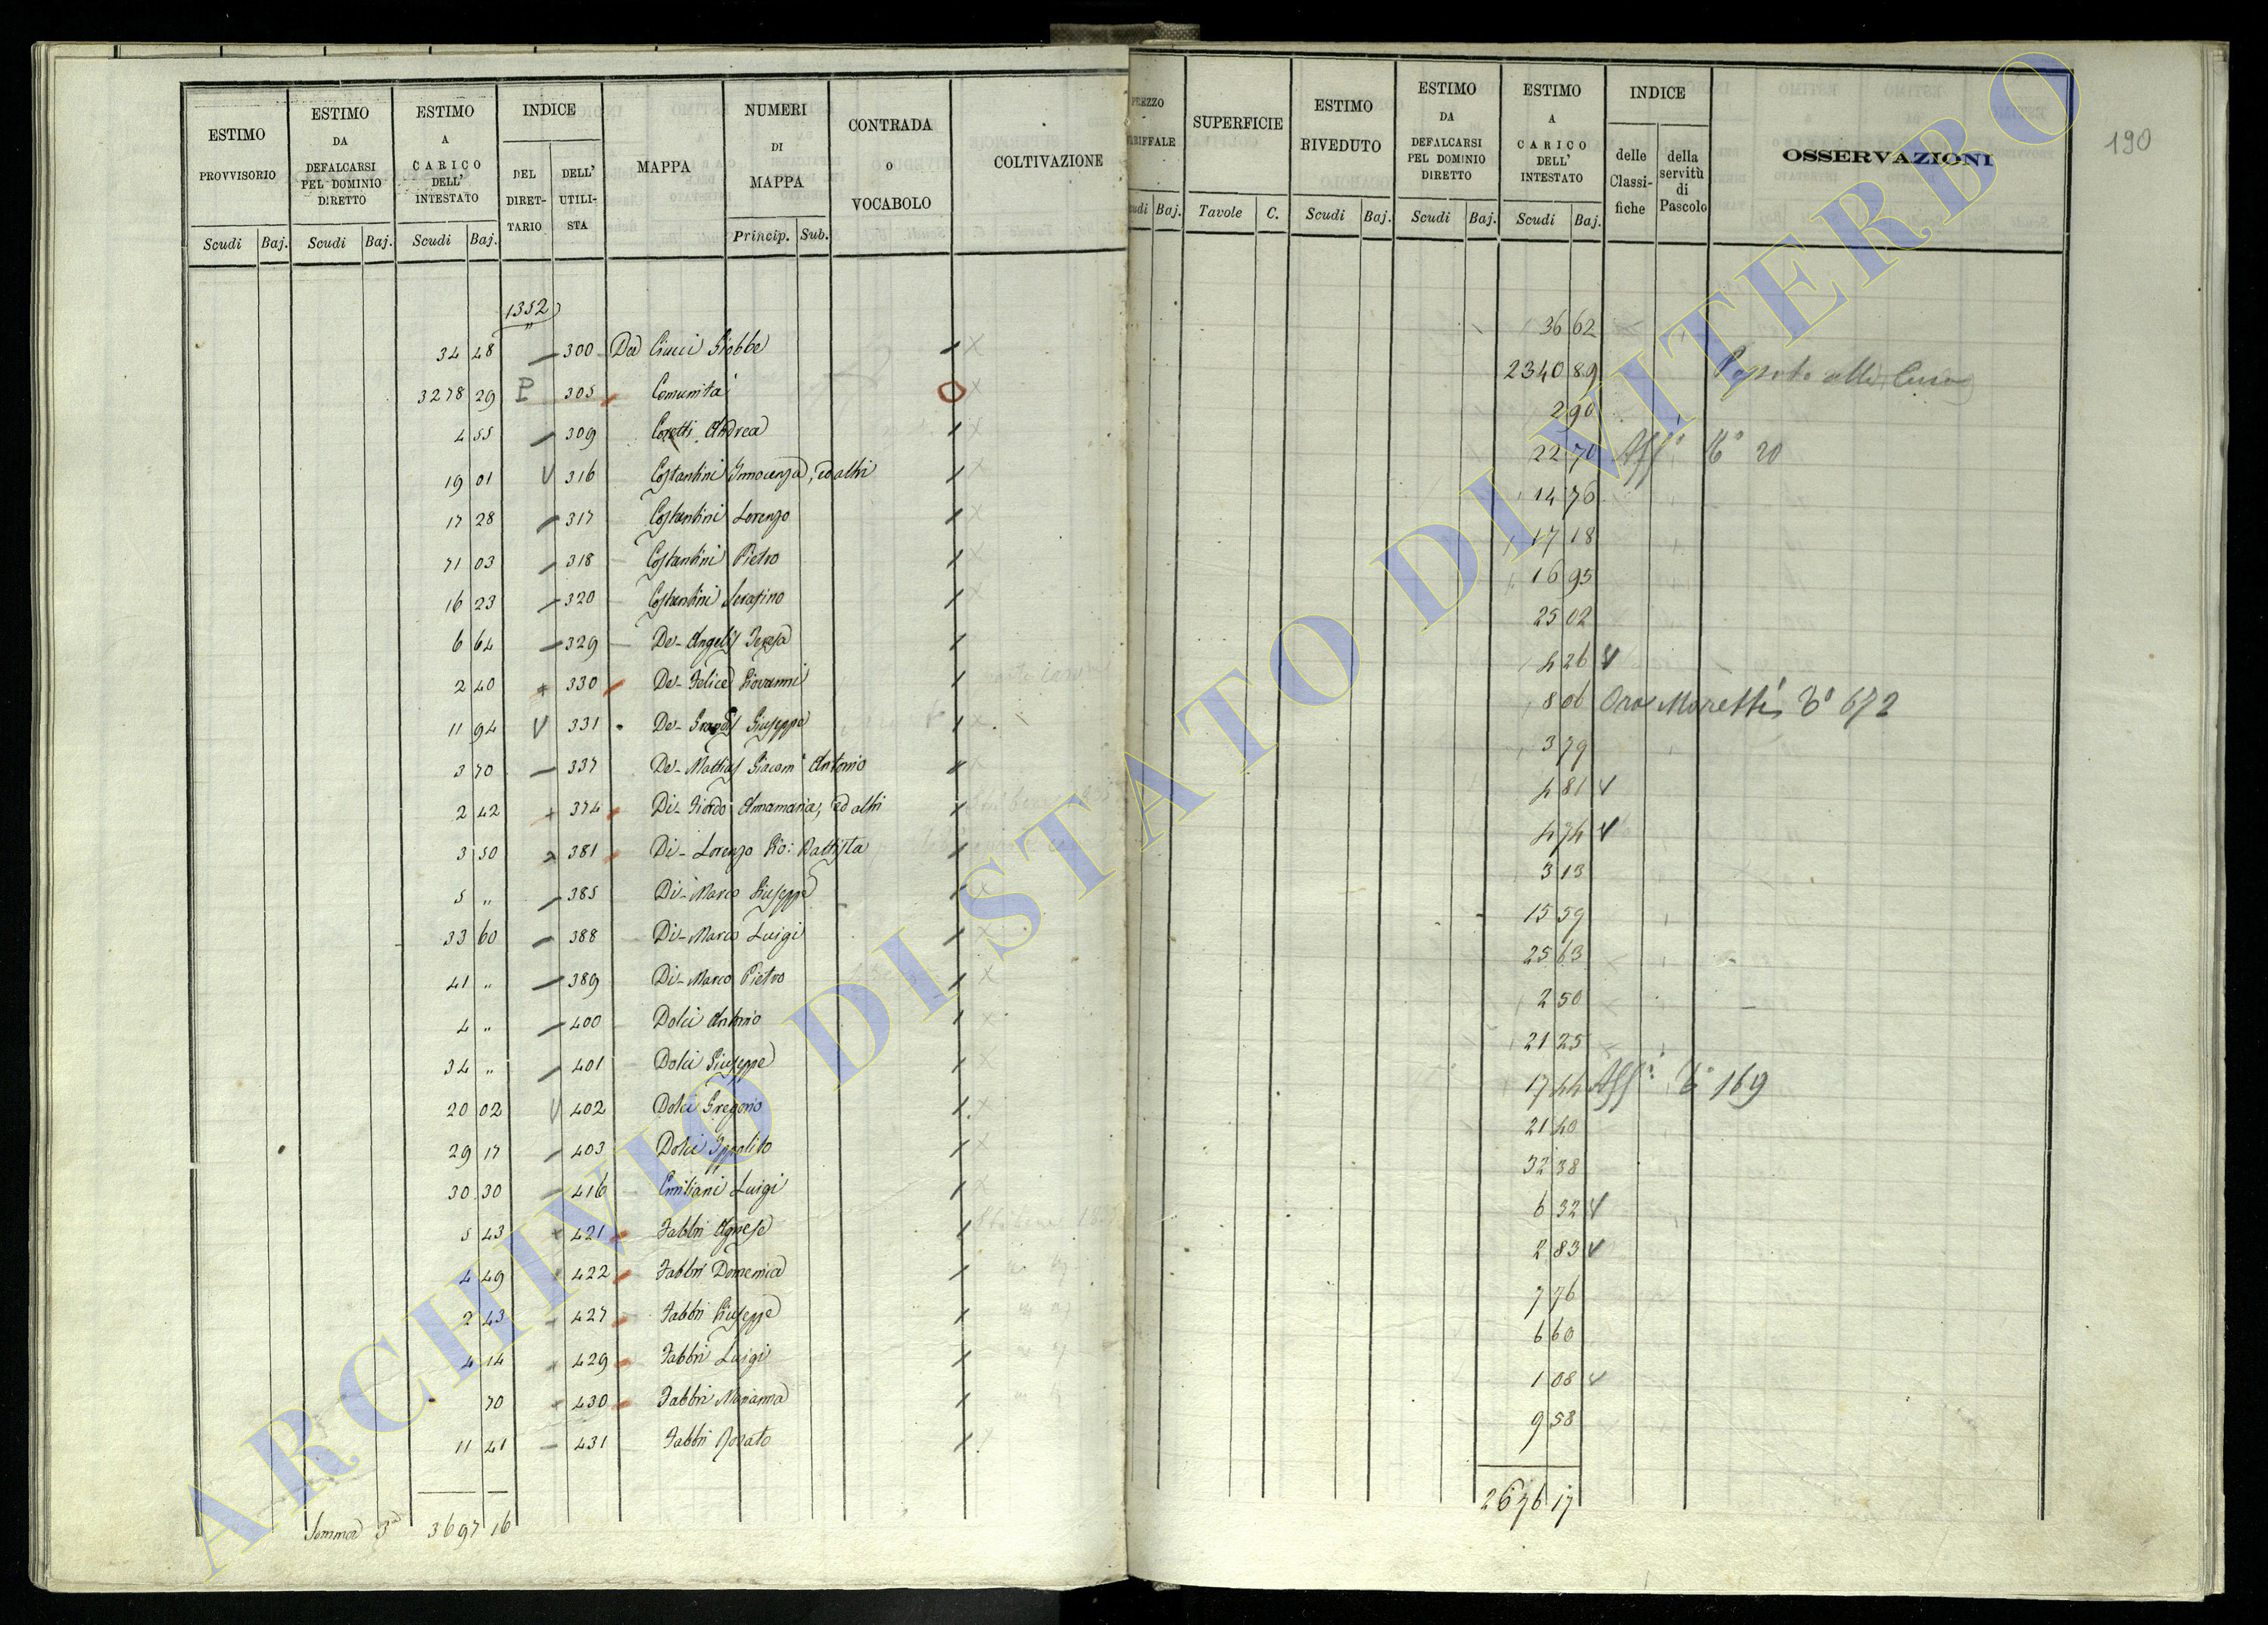 190
ESTIMO PROVVISORIO
ESTIMO DA DEFALCARSI PEL DOMINIO DIRETTO
ESTIMO A CARICO DELL' INTESTATO
INDICE
DEL DIRETTARIO
DELL' UTILISTA
MAPPA
NUMERI DI MAPPA
CONTRADA O VOCABOLO
COLTIVAZIONE
Scudi Baj. Scudi Baj. Scudi Baj. Princip. Sub.
1352
34 48 300 Da Ciucci Giobbe
3278 29 P 305 Comunita
4 55 309 Coretti Andrea
19 01 V 316 Costantini Innocenza, ed altri
17 28 317 Costantini Lorenzo
71 03 318 Costantini Pietro
16 23 320 Costantini Serafino
6 64 329 De-Angelis Teresa
2 40 330 De-Felice Giovanni
11 94 V 331 De-Grandis Giuseppe
3 70 337 De-Mattias Giacom° Antonio
2 42 374 Di-Giordo Annamaria, ed altri
3 50 381 Di-Lorenzo Gio: Battista
5 " 385 Di-Marco Giuseppe
33 60 388 Di-Marco Luigi
41 " 389 Di-Marco Pietro
4 " 400 Dolci Antonio
34 " 401 Dolci Giuseppe
20 02 V 402 Dolci Gregorio
29 17 403 Dolci Ippolito
30 30 416 Emiliani Luigi
5 43 421 Fabbri Agnese
4 49 422 Fabbri Domenica
2 43 427 Fabbri Giuseppe
4 14 429 Fabbri Luigi
70 430 Fabbri Marianna
11 41 431 Fabbri Donato
Somma 3a 3697 16
PREZZO TARIFFALE
SUPERFICIE
ESTIMO RIVEDUTO
ESTIMO DA DEFALCARSI PEL DOMINIO DIRETTO
ESTIMO A CARICO DELL' INTESTATO
INDICE
delle Classifiche
della servitù di Pascolo
OSSERVAZIONI
Scudi Baj. Tavole C. Scudi Baj. Scudi Baj. Scudi Baj.
36 62
2340 89
2 90
22 70 Aff° 20
14 76
17 18
16 95
25 02
4 26 V
8 06 Moretti 672
3 79
4 81 V
4 74 V
3 13
15 59
25 63
2 50
21 25
17 44 Aff° 169
21 40
32 38
6 32 V
2 83 V
7 76
6 60
1 08 V
9 58
2676 17
ARCHIVIO DI STATO DI VITERBO